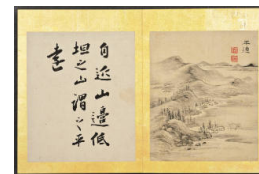 自近山邊低
坦之山謂之平
遠
平遠